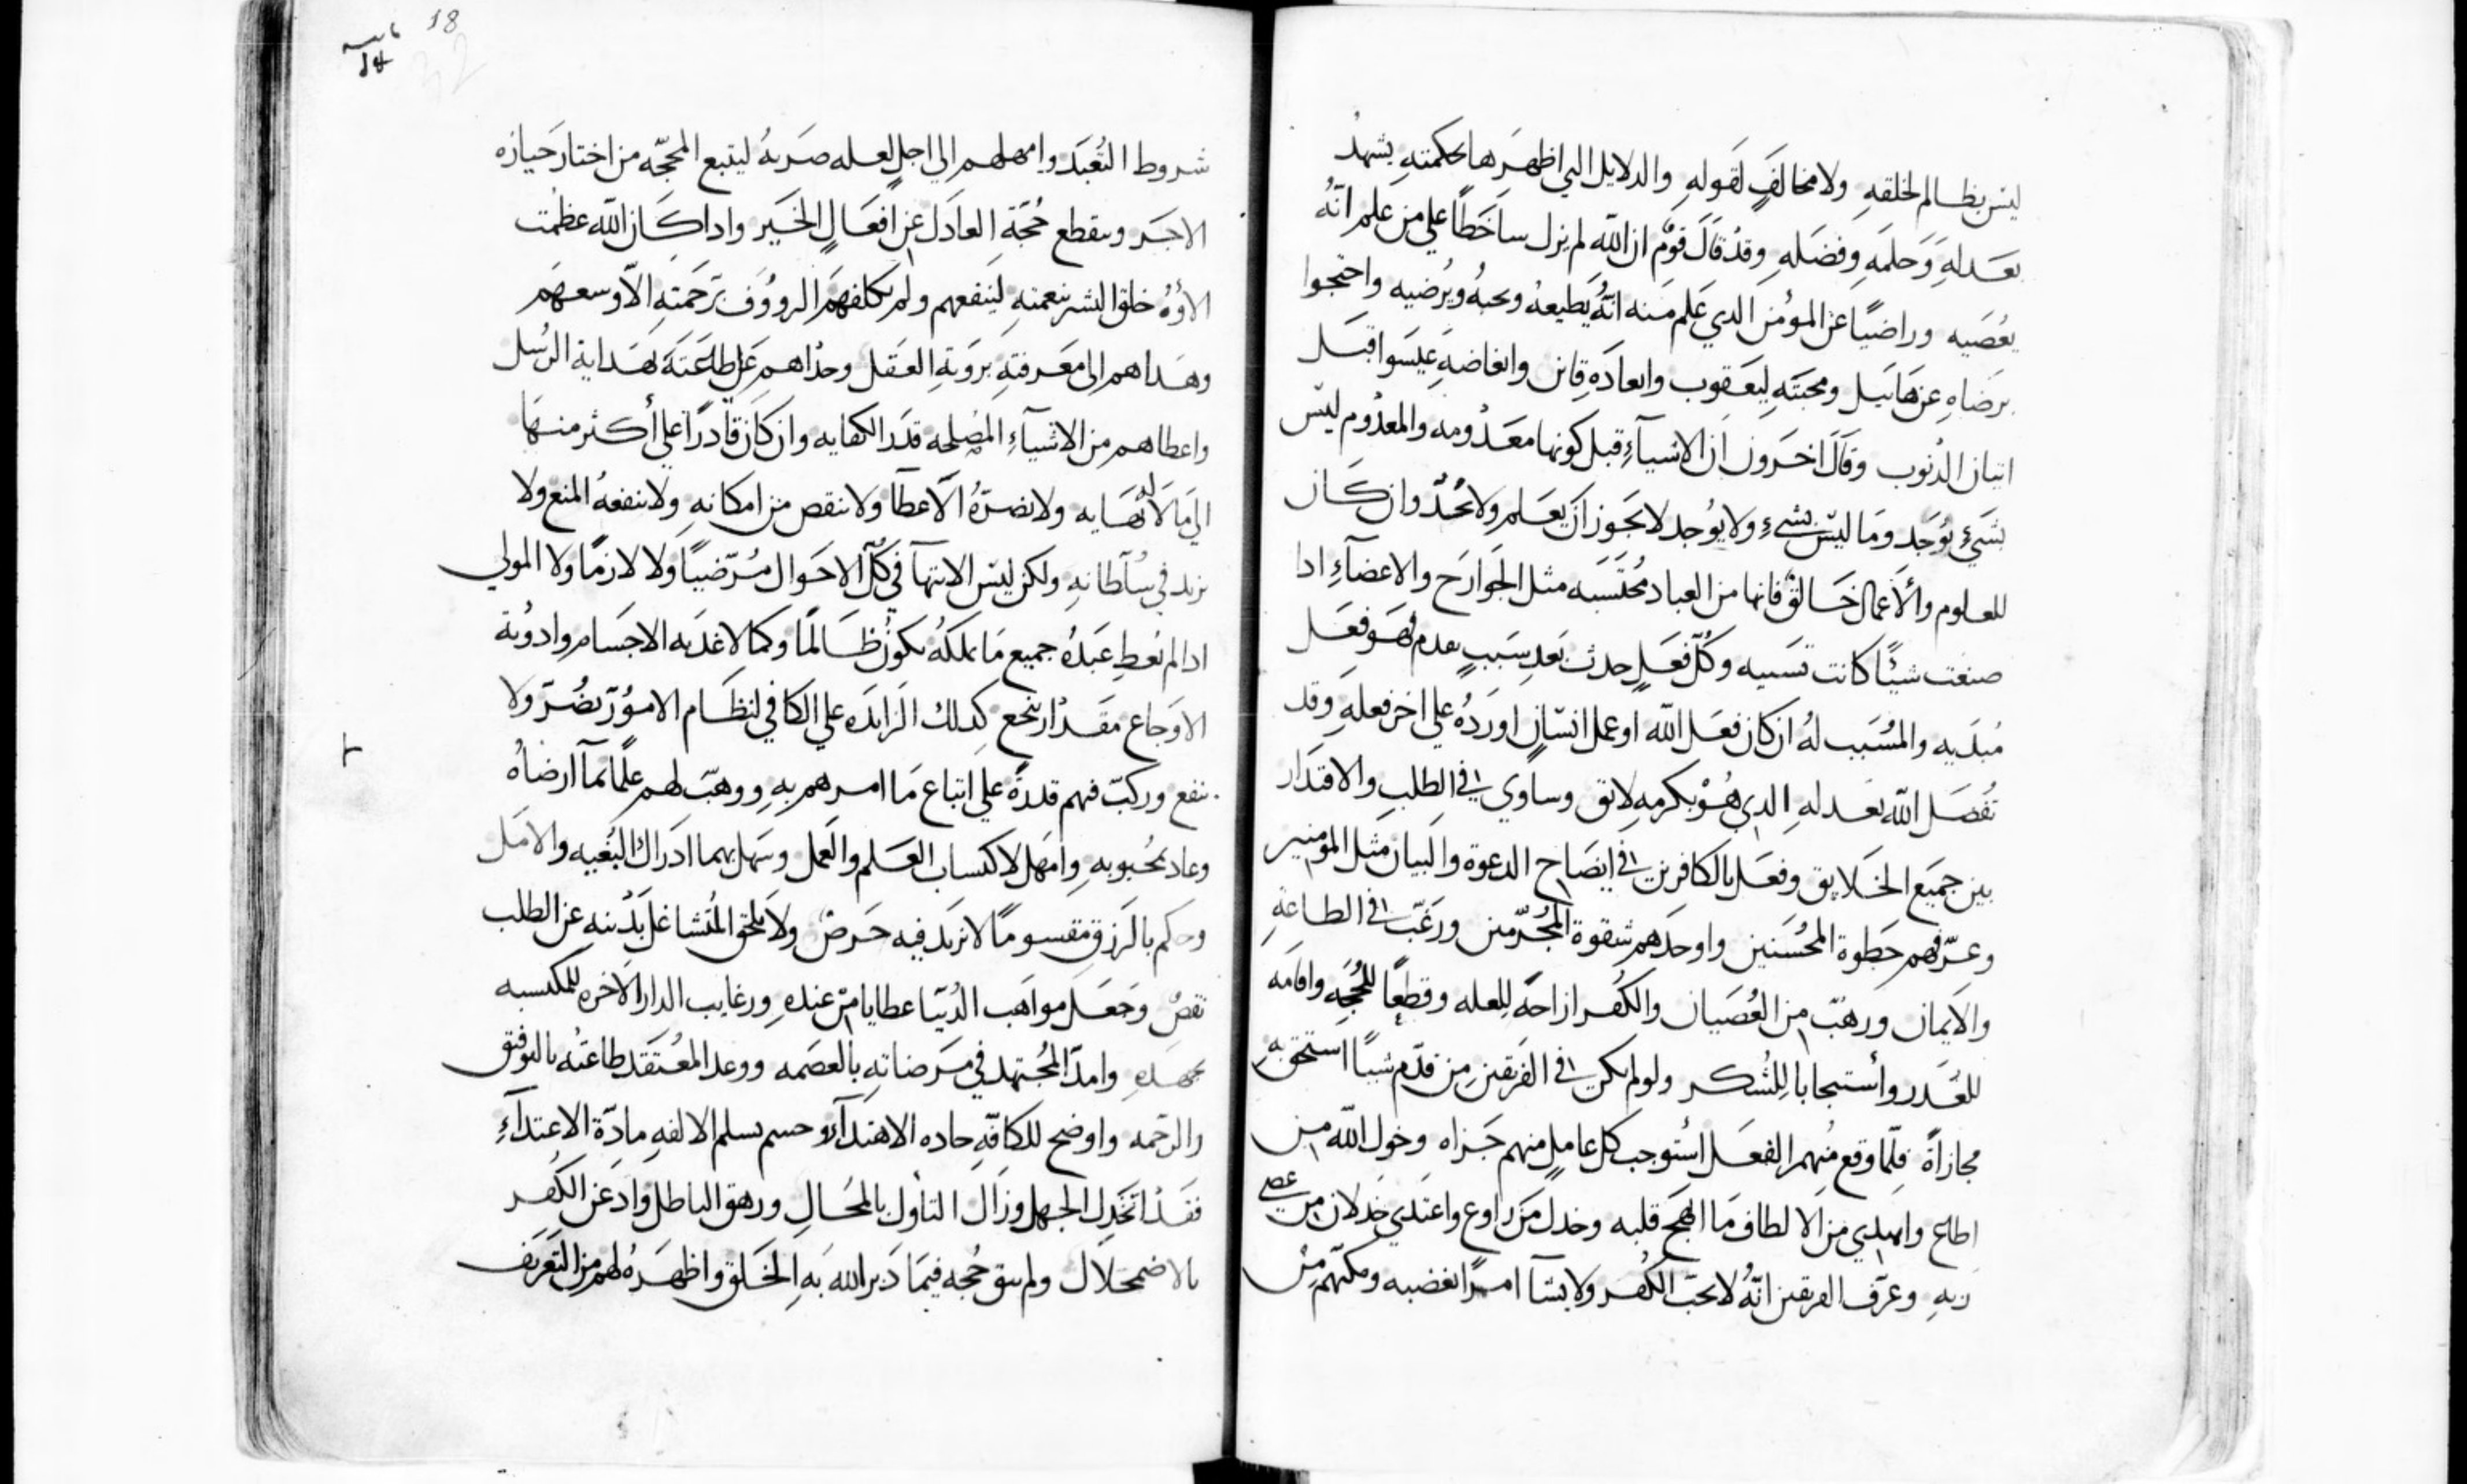 ليس بظالم لخلقه ولا مخالفٍ لقوله والدلايل التي اظهرها بحكمته يشهدُ
بعدله وحلمه وفضله وقد قال قومٌ ان الله لم يزل ساخطًا علي من علم انّهُ
يعصيه وراضيًا عن المؤمن الدي علم منه انّهُ يطيعهُ ويحبهُ ويُرضيه واحتجوا
برضاه عن هابيل ومحبته ليعقوب وابعاده قاين وابغاضه عيسوا قبل
اتيان الدنوب وقال اخرون ان الاشيآءِ قبل كونها معدُومه والمعدُوم ليس
بشيءٍ يوُجد وما ليس بشيءٍ ولا يوُجد لا يجوز ان يعلم ولا يحُدّ وان كان
للعلوم والأعمال خالقٌ فانها من العباد محُتسبه مثل الجوارح والاعضآءِ ادا
صنعت شيئًا كانت تسببه وكلّ فعلٍ حدث بعد سببٍ بعدم فهو فعل
مُبديه والمُسُبب لهُ ان كان فعل الله او عمل انسانٍ اوردُه علي اخر فعله وقد
تفُضل الله بعدله الدي هُوْ بكرمه لايق وساوي في الطلب والاقتدار
بين جميع الخلايق وفعل بالكافرين في ايضاح الدعوة والبيان مثل المؤمنين
وعرّفهم حظوة المحُسنين واوحدهم شقوة المجُرّمين ورغبّ في الطاعة
والايمان ورهبّ من العُصيان والكُفر ازاحةً للعله وقطعًا للحُجه واقامه
للعُدر وأستيجابا للشُكر ولو لم يكن في الفريقين من قدّم شيئًا استحق به
مجازاةً فلمّا وقع مُنهم الفعل استُوجب كل عاملٍ منهم جزاه وخول الله من
اطاع واهدي من الالطاف ما ابهج قلبه وخدل من راوغ واعتدي خدلان من عصي
ربه وعرّف الفريقين انّهُ لا يحب الكُفر ولا يشآ امرًا يغضبه ومكنّهم من
18
شروط التُعبد وامهلهم الي اجلٍ لعله ضربهُ ليتبع المحجّه من اختار حيازه
الاجر وينقطع حُجّة العادل عن افعال الخير وادا كان الله عظمت
الآؤهُ خلق البشر بنعمته لينفعهم ولم يكلفهم الرووُف برحمته الّا وسعهم
وهداهم الي معرفته برويّة العقل وحداهم علي طاعته بهداية الرسُل
واعطاهم من الاشيآءِ المصُلحه قدر الكفايه وان كان قادرًا علي أكثر منها
الي ما لا نهايه ولا يضرّهُ الاعطآ ولا ينقص من امكانه ولا ينفعهُ المنع ولا
يزيد في سلطانه ولكن ليس الانتهآ في كلّ الاحوال مُرّضيًا ولا لازمًا ولا المولي
ادا لم يعُط عبدُه جميع ما يملكهُ يكونُ ظالمًا وكما لاغديه الاجسام وادوُية
الاوجاع مقدُار ينجع كدلك الزايده علي الكافي لنظام الاموُر يضُرّ ولا
ينفع وركبّ فيهم قدرةً علي اتباع ما امرهم به ووهبّ لهم علمًا بمآ ارضاهُ
وعاد بمحُبوبه وامهل لاكتساب العلم والعمل وسهل بهما ادراك البُغيه والامل
وحكم بالرزق مقسومًا لا يزيد فيه حرصٌ ولا يلحق المتُشاغل بدُينه عن الطلب
نقصٌ وجعل مواهب الدُنيا عطايا من عنده ورغايب الدار الاخره للمكتسبه
بجهده وامدّ المجُتهد في مرضاته بالعصمه ووعد المعُتقد طاعتهُ بالتوفيق
والرحّمه واوضح للكافّه جاده الاهتدآء وحسم بسلم الالفه مادّة الاعتدآءِ
فقدُ اتخدل الجهل وزال التاُول بالمحُال ورهق الباطل وادعن الكُفر
بالاضمحلال ولم يبق حُجه فيما دبر الله به الخلق واظهرهُ لهم من التعريف